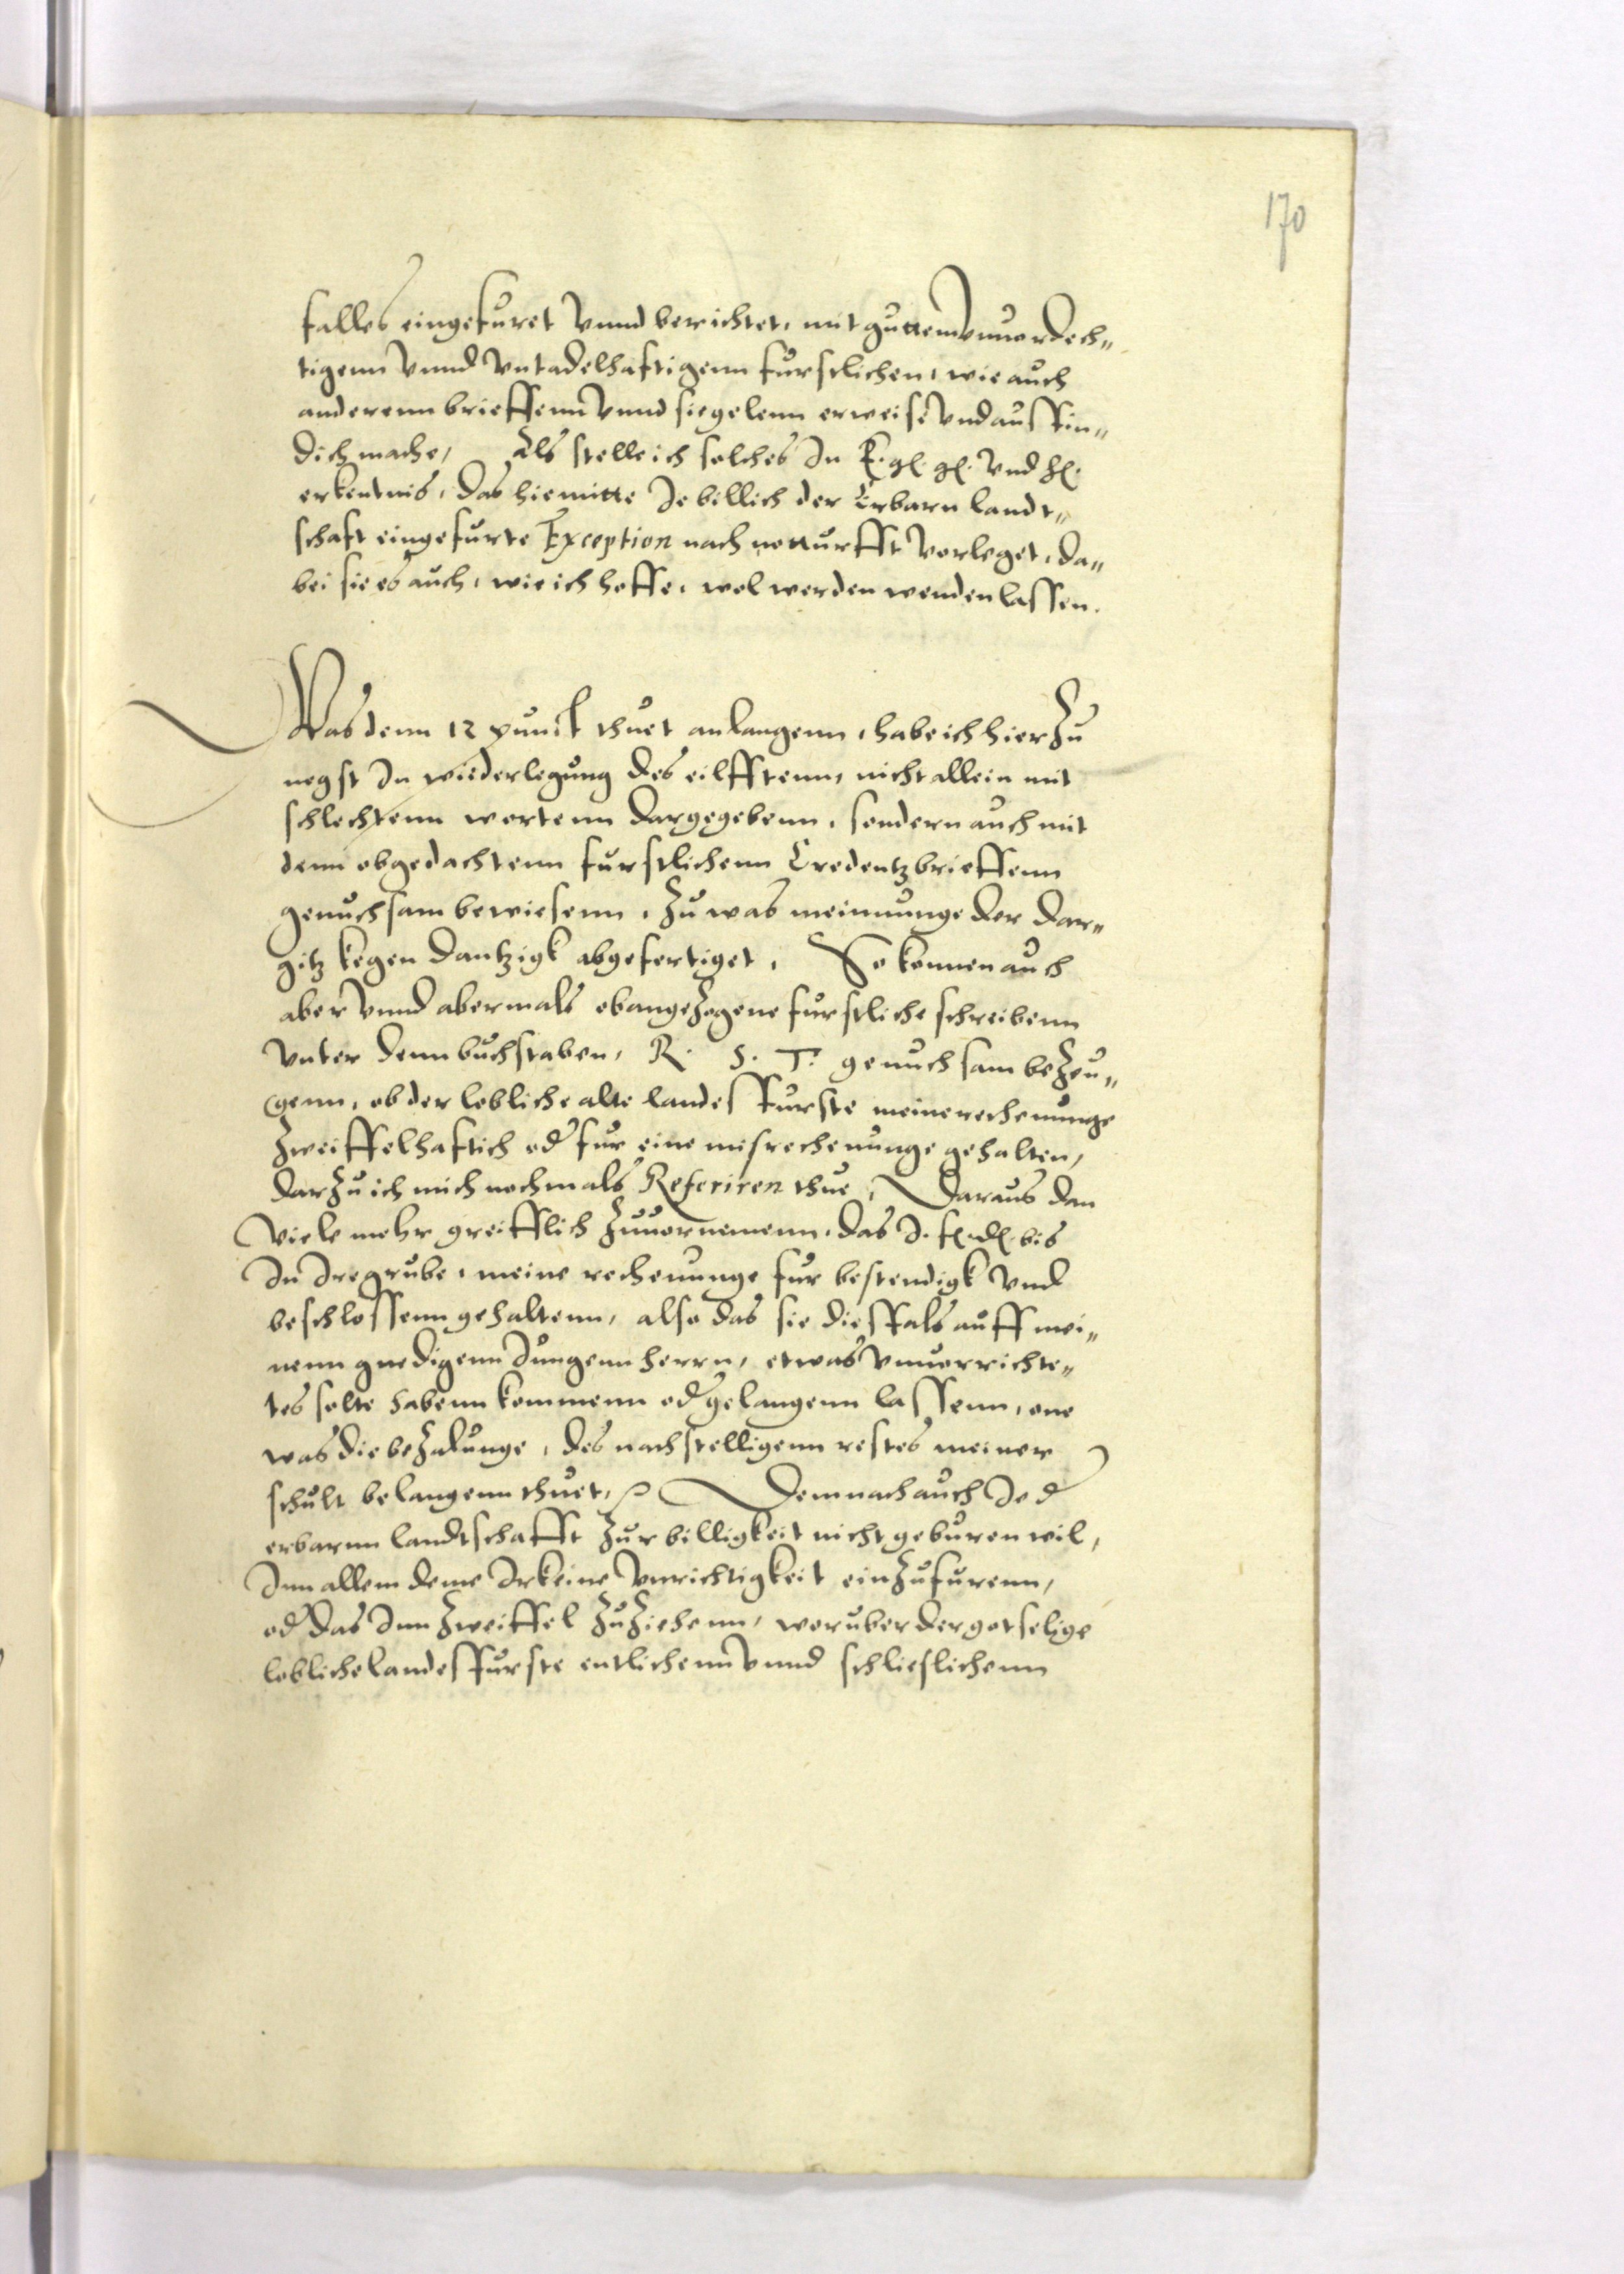 170
falles eingefuret vnnd berichtet, mit guttem vnuordech„
tigenn vnnd vntadelhaftigenn furstlichen, wie auch
anderenn brieffenn vnnd siegelenn erweise vnd ausffin„
dich mache, Als stelle ich solches In E. gl. gl. vnd hl.
erkentnis, das hiemitte Je billich der Erbarn landt„
schaft eingefurte Exception nach notturfft vorleget, da„
bei sie es auch, wie ich hoffe, wol werden wenden lassen.
Was denn 12 punct thuet anlangenn, habe ich hierzu
negst In wiederlegung des eilfftenn, nicht allein mit
schlechtenn wortenn dargegebenn, sondern auch mit
denn obgedachtenn furstlichenn Credentzbrieffenn
genuchsam bewiesenn, zu was meinunge der Dar„
gitz kegen Dantzigk abgefertiget, So konnen auch
aber vnnd abermals obangezogene furstliche schreibenn
vnter denn buchstaben, R. S. T. genuchsam bezeu„
genn, ob der lobliche alte landesffurste meine rechenunge
zweiffelhaftich od fur eine misrechenunge gehalten,
darzu ich mich nochmals Referiren thue, Daraus dan
viele mehr greifflich zuuornemenn, das I. fl. dl. bis
In Ire grube, meine rechenunge fur bestendigk vnd
beschlossenn gehaltenn, also das sie diesffals auff mei„
nenn gnedigenn Jungenn herrn, etwas vnuorrichte„
tes solte habenn kommenn od gelangenn lassenn, one
was die bezalunge, des nachstelligenn restes meiner
schult belangenn thuet, Demnach auch Je d
erbarnn landtschafft zur billigkeit nicht geburen wil,
Inn allem deme Irkeine vnrichtigkeit einzufurenn,
od das Inn zweiffel zuziehenn, woruber der gotselige
lobliche landesffurste entlichenn vnnd schlieslichenn